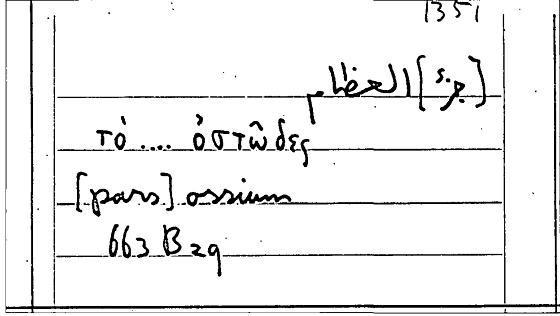 1351
[جزء] العظام
τὸ .... ὀστῶδες
[pars] ossium
663 B 29